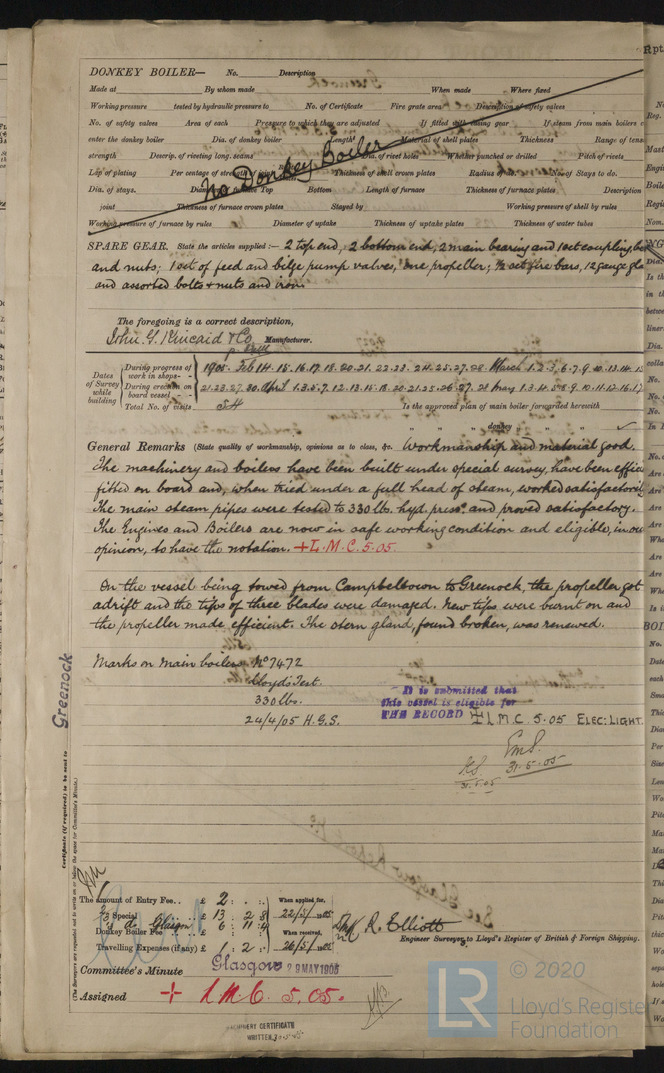 DONKEY BOILER— No. Description
Made at By whom made When made Where fixed
Working pressure tested by hydraulic pressure to No. of Certificate Fire grate area Description of safety valves
No. of safety valves Area of each Pressure to which they are adjusted If fitted with easing gear If steam from main boilers c
enter the donkey boiler Dia. of donkey boiler Length Material of shell plates Thickness Range of tens
strength Descrip. of riveting long. seams Dia. of rivet holes Whether punched or drilled Pitch of rivets
Lap of plating Per centage of strength of joint Thickness of shell crown plates Radius No. of Stays to do.
Dia. of stays. Diameter of furnace Top Bottom Length of furnace Thickness of furnace plates Description
joint Thickness of furnace crown plates Stayed by Working pressure of shell by rules
Working pressure of furnace by rules Diameter of uptake Thickness of uptake plates Thickness of water tubes
No Donkey Boiler
SPARE GEAR. State the articles supplied:— 2 top end, 2 bottom end, 2 main bearing and 1 set coupling bo
and nuts; 1 set of feed and bilge pump valves, one propeller; ½ set fire bars, 12 gauge gla
and assorted bolts & nuts and iron.
The foregoing is a correct description,
John G. Kincaid & Co. Manufacturer.
Dates of Survey while building
During progress of work in shops- - 1905. Feb 14. 15. 16. 17. 18. 20. 21. 22. 23. 24. 25. 27. 28. March 1. 2. 3. 6. 7. 9. 10. 13. 14. 15
During erection on board vessel - - - 21. 23. 27. 30. April 1. 3. 5. 7. 12. 13. 15. 18. 20. 21. 25. 26. 27. 28 May 1. 3. 4. 5. 8. 9. 10. 11. 12. 16. 17
Total No. of visits 54 Is the approved plan of main boiler forwarded herewith
" " " donkey " " "
General Remarks (State quality of workmanship, opinions as to class, &c. Workmanship and material good.
The machinery and boilers have been built under special survey, have been effici
fitted on board and, when tried under a full head of steam, worked satisfactorily
The main steam pipes were tested to 330 lbs. hyd. press. and proved satisfactory.
The Engines and Boilers are now in safe working condition and eligible, in our
opinion, to have the notation. + L.M.C. 5.05
On the vessel being towed from Campbeltown to Greenock, the propeller got
adrift and the tips of three blades were damaged. New tips were burnt on and
the propeller made efficient. The stern gland, found broken, was renewed.
Marks on main boilers No 7472
Lloyd's Test.
330 lbs.
24/4/05 H.G.S.
It is submitted that
this vessel is eligible for
THE RECORD + L.M.C. 5.05 ELEC: LIGHT.
31.5.05
31.5.05
Greenock
Certificate (if required) to be sent to
(The Surveyors are requested not to write on or below the space for Committee's Minute.)
The amount of Entry Fee.. £ 2 : : When applied for,
Special £ 13 . 2 . 8 22/5/1905
Glasgow 6 11 4
Donkey Boiler Fee £ When received,
Travelling Expenses (if any) £ 1 : 2 : 26/5/1905
R. Elliott
Engineer Surveyors to Lloyd's Register of British & Foreign Shipping.
Committee's Minute Glasgow 29 MAY 1905
Assigned + L.M.C. 5.05.
MACHINERY CERTIFICATE
WRITTEN
LR
© 2020
Lloyd's Register
Foundation